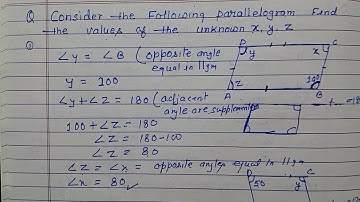 Q Consider the Following parallelogram Find
the values of the unknown x, y, z
①
∠y = ∠B (opposite angle
equal in ||gm
y = 100
∠y + ∠z = 180 (adjacent
angle are supplement
100 + ∠z = 180
∠z = 180-100
∠z = 80
∠z = ∠x = opposite angles equal in ||gm
∠x = 80
D
C
y
x
z
100
A
B
C
50
y